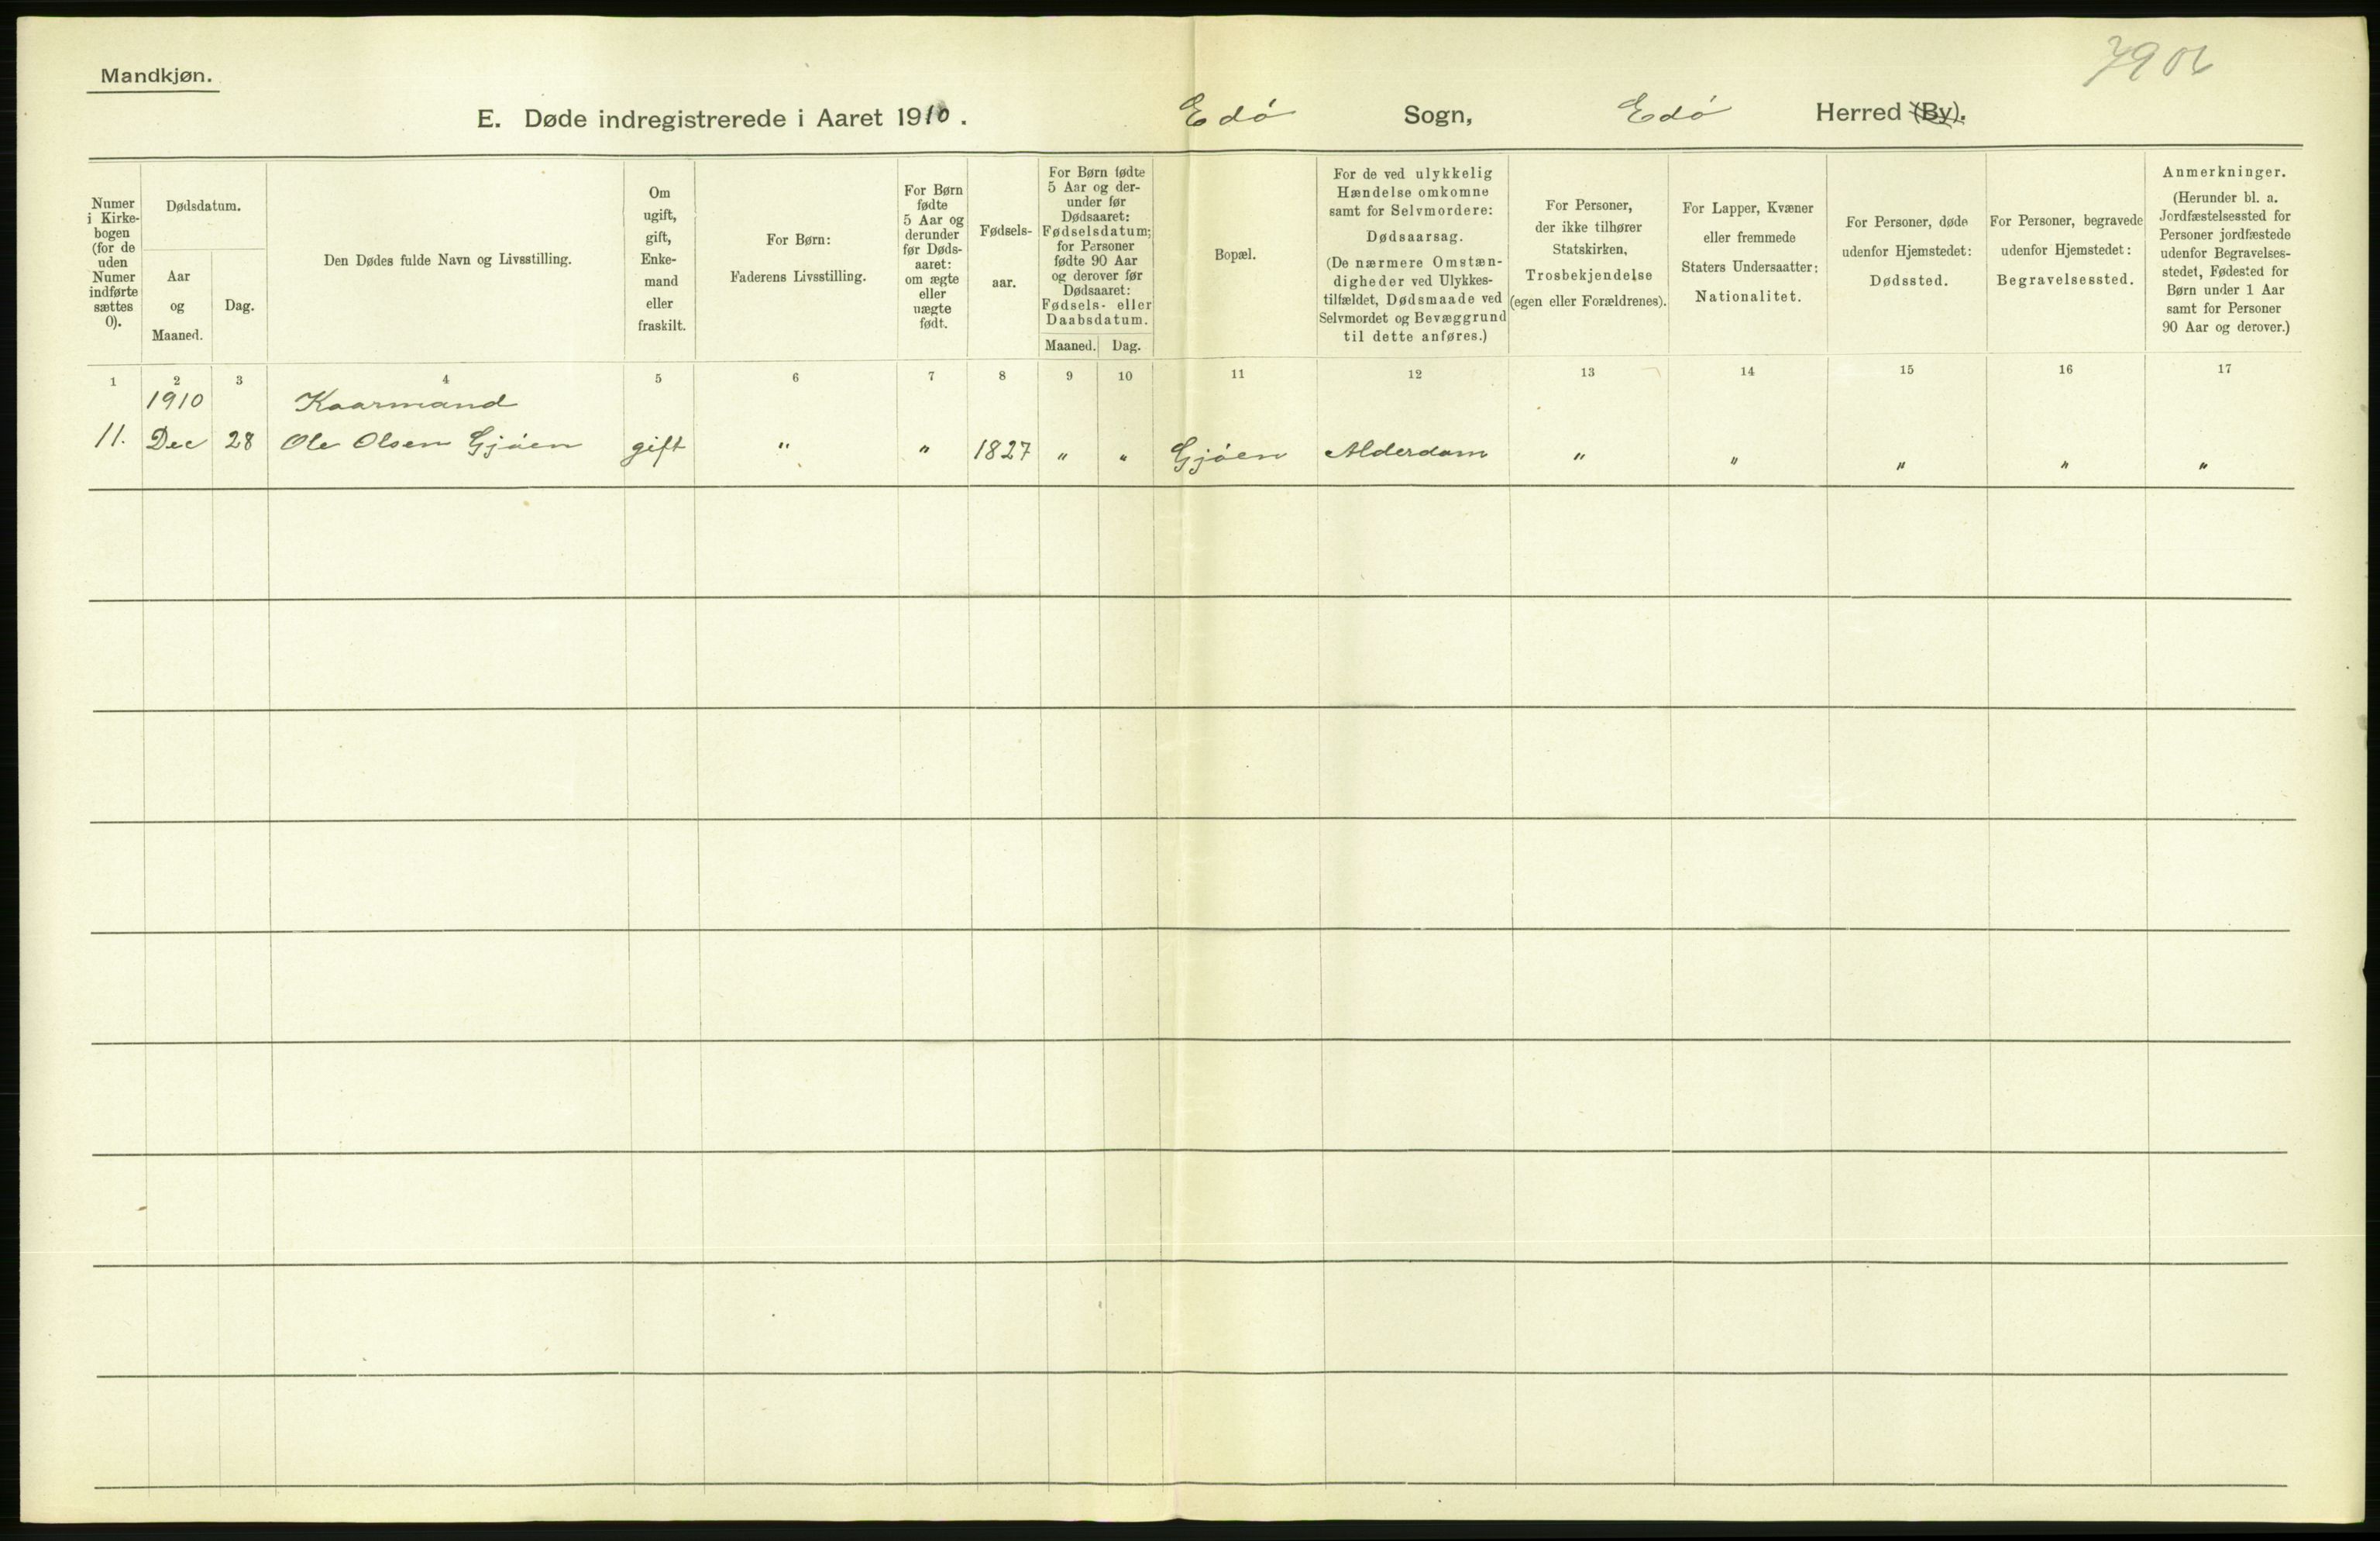 7906
Mandkjøn.
E. Døde indregistrerede i Aaret 1910. Edó Sogn, Edó Herred (By).
Numer
i Kirke-
bogen
(for de
uden
Numer
indførte
sættes
0).
Dødsdatum.
Aar
og
Maaned.
Dag.
Den Dødes fulde Navn og Livsstilling.
Om
ugift,
gift,
Enke-
mand
eller
fraskilt.
For Børn:
Faderens Livsstilling.
For Børn
fødte
5 Aar og
derunder
før Døds-
aaret:
om ægte
eller
uægte
født.
Fødsels-
aar.
For Børn fødte
5 Aar og der-
under før
Dødsaaret:
Fødselsdatum;
for Personer
fødte 90 Aar
og derover før
Dødsaaret:
Fødsels- eller
Daabsdatum.
Maaned. Dag.
Bopæl.
For de ved ulykkelig
Hændelse omkomne
samt for Selvmordere:
Dødsaarsag.
(De nærmere Omstæn-
digheder ved Ulykkes-
tilfældet, Dødsmaade ved
Selvmordet og Bevæggrund
til dette anføres.)
For Personer,
der ikke tilhører
Statskirken,
Trosbekjendelse
(egen eller Forældrenes).
For Lapper, Kvæner
eller fremmede
Staters Undersaatter:
Nationalitet.
For Personer, døde
udenfor Hjemstedet:
Dødssted.
For Personer, begravede
udenfor Hjemstedet:
Begravelsessted.
Anmerkninger.
(Herunder bl. a.
Jordfæstelsessted for
Personer jordfæstede
udenfor Begravelses-
stedet, Fødested for
Børn under 1 Aar
samt for Personer
90 Aar og derover.)
1 2 3 4 5 6 7 8 9 10 11 12 13 14 15 16 17
1910 Kaarmand
11. Dec 28 Ole Olsen Gjóen gift " " 1827 " " Gjóen Alderdom " " " " "